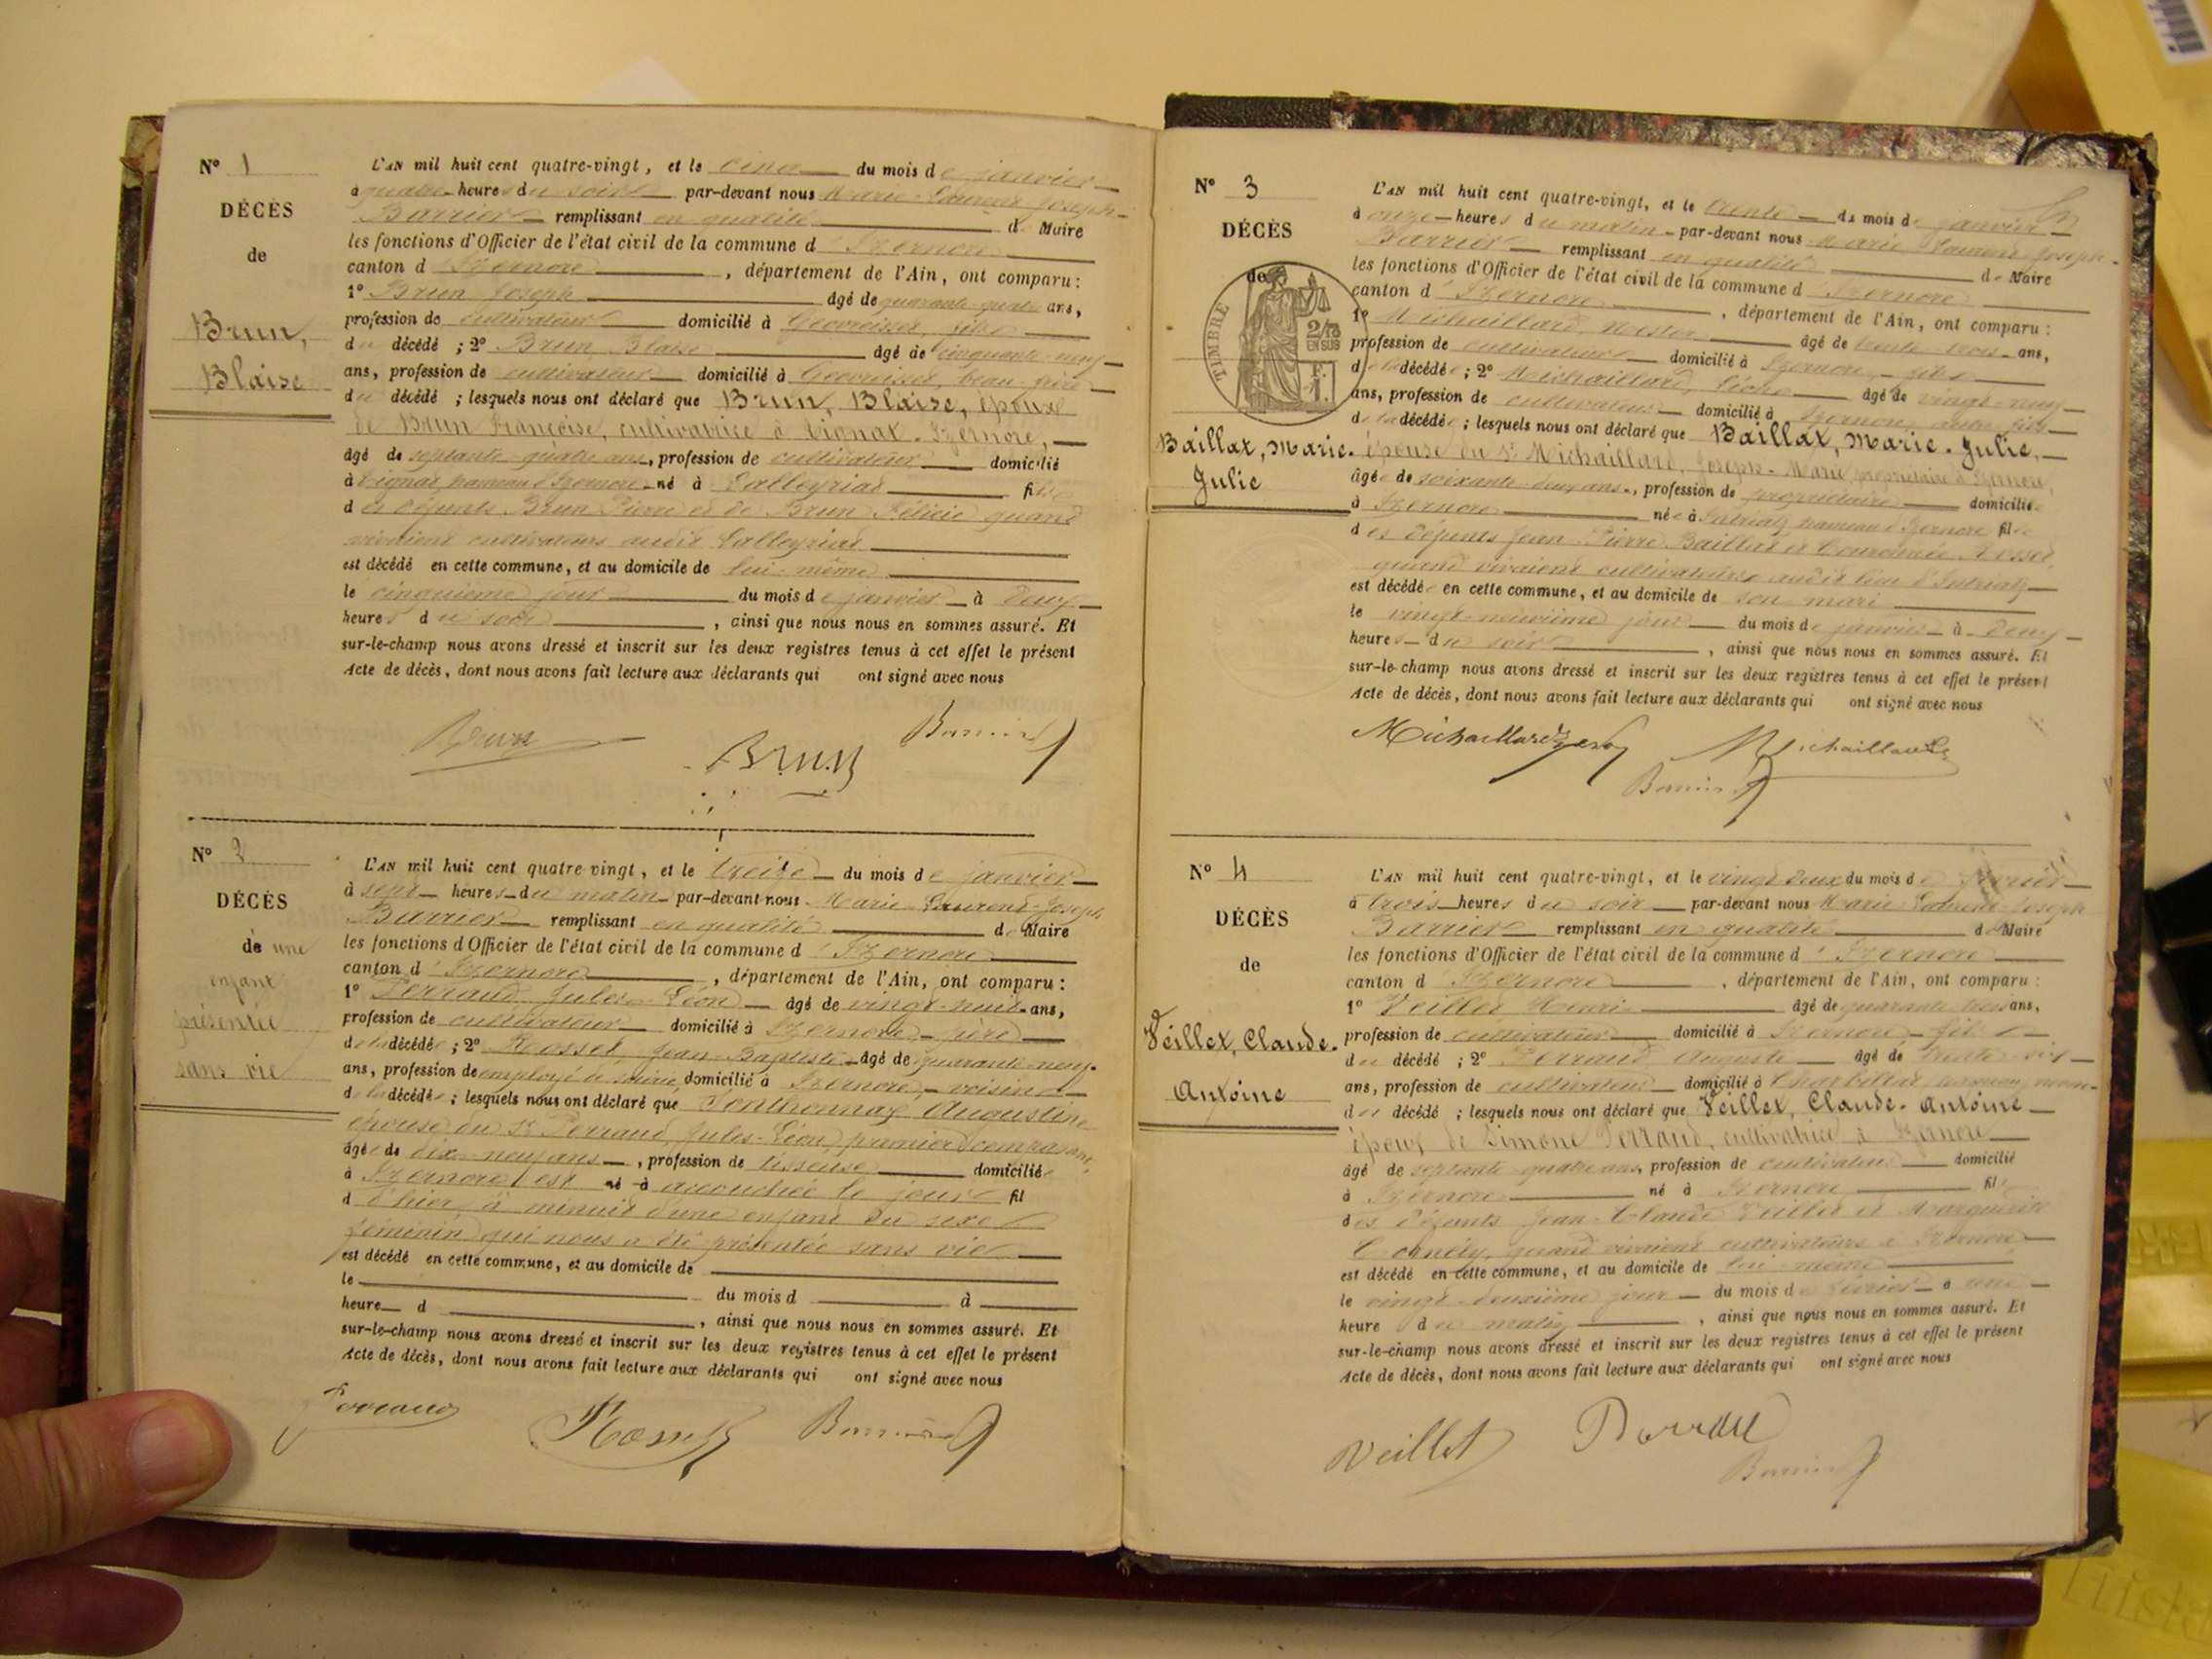 N° 1
DÉCÈS
de
Brun,
Blaise
L'AN mil huit cent quatre-vingt, et le cinq du mois de janvier
à quatre heures du soir par-devant nous Marie Laurent Joseph
Barrier remplissant en qualité de Maire
les fonctions d'Officier de l'état civil de la commune d'Izernore
canton d'Izernore, département de l'Ain, ont comparu :
1° Brun Joseph âgé de quarante-quatre ans,
profession de cultivateur domicilié à Geovreisset, fils
du décédé ; 2° Brun Blaise âgé de cinquante-neuf
ans, profession de cultivateur domicilié à Geovreisset, beau-frère
du décédé ; lesquels nous ont déclaré que Brun, Blaise, époux
de Brun Françoise, cultivatrice à Tignat-Izernore,
âgé de septante-quatre ans, profession de cultivateur domicilié
à Tignat hameau d'Izernore né à Lalleyriat fils
des défunts Brun Pierre et de Brun Félicie quand
vivaient cultivateurs audit Lalleyriat
est décédé en cette commune, et au domicile de lui-même
le cinquième jour du mois de janvier à deux
heures du soir, ainsi que nous nous en sommes assuré. Et
sur-le-champ nous avons dressé et inscrit sur les deux registres tenus à cet effet le présent
Acte de décès, dont nous avons fait lecture aux déclarants qui ont signé avec nous
Brun Brun Barrier
N° 2
DÉCÈS
de une
enfant
présentée
sans vie
L'AN mil huit cent quatre-vingt, et le treize du mois de janvier
à sept heures du matin par-devant nous Marie Laurent-Joseph
Barrier remplissant en qualité de Maire
les fonctions d'Officier de l'état civil de la commune d'Izernore
canton d'Izernore, département de l'Ain, ont comparu :
1° Perraud Jules-Léon âgé de vingt-huit ans,
profession de cultivateur domicilié à Izernore, père
de la décédée ; 2° Rosset Jean-Baptiste âgé de quarante-neuf
ans, profession de employé à domicilié à Izernore, voisin
de la décédée ; lesquels nous ont déclaré que Ponthonnax Augustine
épouse du Sr Perraud, Jules-Léon, premier comparant,
âgée de dix-neuf ans, profession de tisseuse domiciliée
à Izernore, est né à accouchée le jour fil
d d'hier à minuit d'une enfant du sexe
féminin qui nous a été présentée sans vie
est décédé en cette commune, et au domicile de
le du mois d à
heure d , ainsi que nous nous en sommes assuré. Et
sur-le-champ nous avons dressé et inscrit sur les deux registres tenus à cet effet le présent
Acte de décès, dont nous avons fait lecture aux déclarants qui ont signé avec nous
Perraud Rosset Barrier
N° 3
DÉCÈS
de
TIMBRE
2/10 EN SUS
Baillat, Marie-
Julie
L'AN mil huit cent quatre-vingt, et le trente du mois de janvier
à onze heures du matin par-devant nous Marie Laurent Joseph
Barrier remplissant en qualité de Maire
les fonctions d'Officier de l'état civil de la commune d'Izernore
canton d'Izernore, département de l'Ain, ont comparu :
1° Michaillard, âgé de trente-trois ans,
profession de cultivateur domicilié à Izernore, fils
de la décédée ; 2° Michaillard, âgé de vingt-neuf
ans, profession de cultivateur domicilié à Izernore, autre fils
de la décédée ; lesquels nous ont déclaré que Baillat, Marie-Julie,
épouse du Sr Michaillard, Joseph-Marie propriétaire à Izernore,
âgée de soixante-deux ans, profession de propriétaire domiciliée
à Izernore née à Intriat hameau d'Izernore fille
des défunts Jean-Pierre Baillat et Rosset,
quand vivaient cultivateurs audit lieu d'Intriat
est décédée en cette commune, et au domicile de son mari
le vingt-neuvième jour du mois de janvier à deux
heures du soir, ainsi que nous nous en sommes assuré. Et
sur-le-champ nous avons dressé et inscrit sur les deux registres tenus à cet effet le présent
Acte de décès, dont nous avons fait lecture aux déclarants qui ont signé avec nous
Michaillard Michaillard
Barrier
N° 4
DÉCÈS
de
Veillet, Claude-
Antoine
L'AN mil huit cent quatre-vingt, et le vingt-deux du mois de février
à trois heures du soir par-devant nous Marie Laurent-Joseph
Barrier remplissant en qualité de Maire
les fonctions d'Officier de l'état civil de la commune d'Izernore
canton d'Izernore, département de l'Ain, ont comparu :
1° Veillet Henri âgé de quarante-trois ans,
profession de cultivateur domicilié à Izernore, fils
du décédé ; 2° Perraud Auguste âgé de trente-six
ans, profession de cultivateur domicilié à
du décédé ; lesquels nous ont déclaré que Veillet, Claude-Antoine
époux de Simone Perraud, cultivatrice à Izernore
âgé de septante-quatre ans, profession de cultivateur domicilié
à Izernore né à Izernore fils
des défunts Jean-Claude Veillet et Marguerite
quand vivaient cultivateurs à Izernore
est décédé en cette commune, et au domicile de lui-même
le vingt-deuxième jour du mois de février à une
heure du matin, ainsi que nous nous en sommes assuré. Et
sur-le-champ nous avons dressé et inscrit sur les deux registres tenus à cet effet le présent
Acte de décès, dont nous avons fait lecture aux déclarants qui ont signé avec nous
Veillet Perraud
Barrier